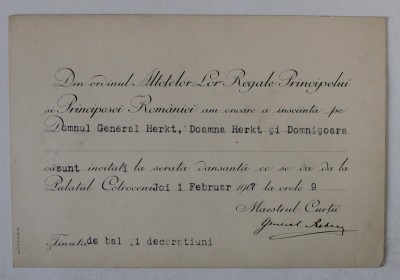 Din ordinul Altețelor Lor Regale Principelui
și Principesei României am onoare a înscința pe
Domnul General Herkt, Doamna Herkt și Domnișoara
că sunt invitați la serata dansantă ce se va da la
Palatul Cotroceni Joi 1 Februar la orele 9
Maestrul Curții
General
Ținuta de bal și decorațiuni